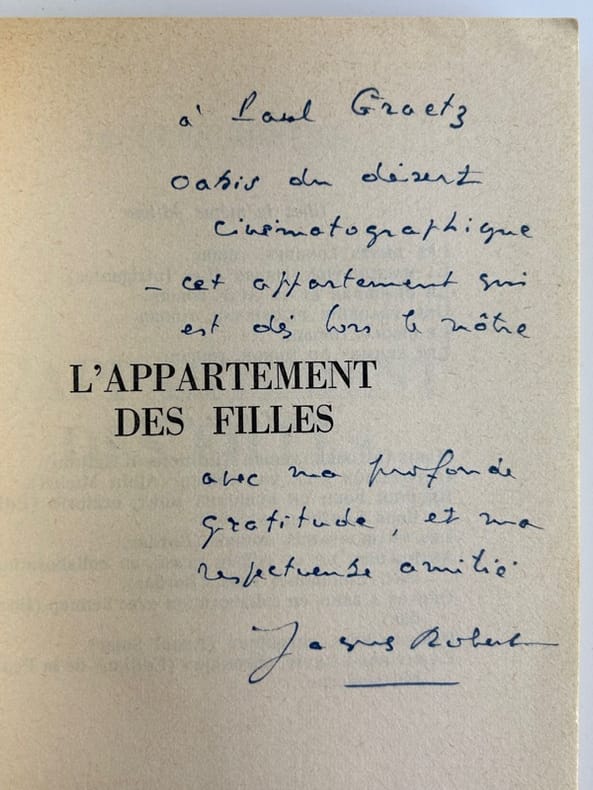 à Paul Graetz
oasis du désert
cinématographique
- cet appartement qui
est dès lors le nôtre
L'APPARTEMENT
DES FILLES
avec ma profonde
gratitude et ma
respectueuse amitié
Jacques Robert